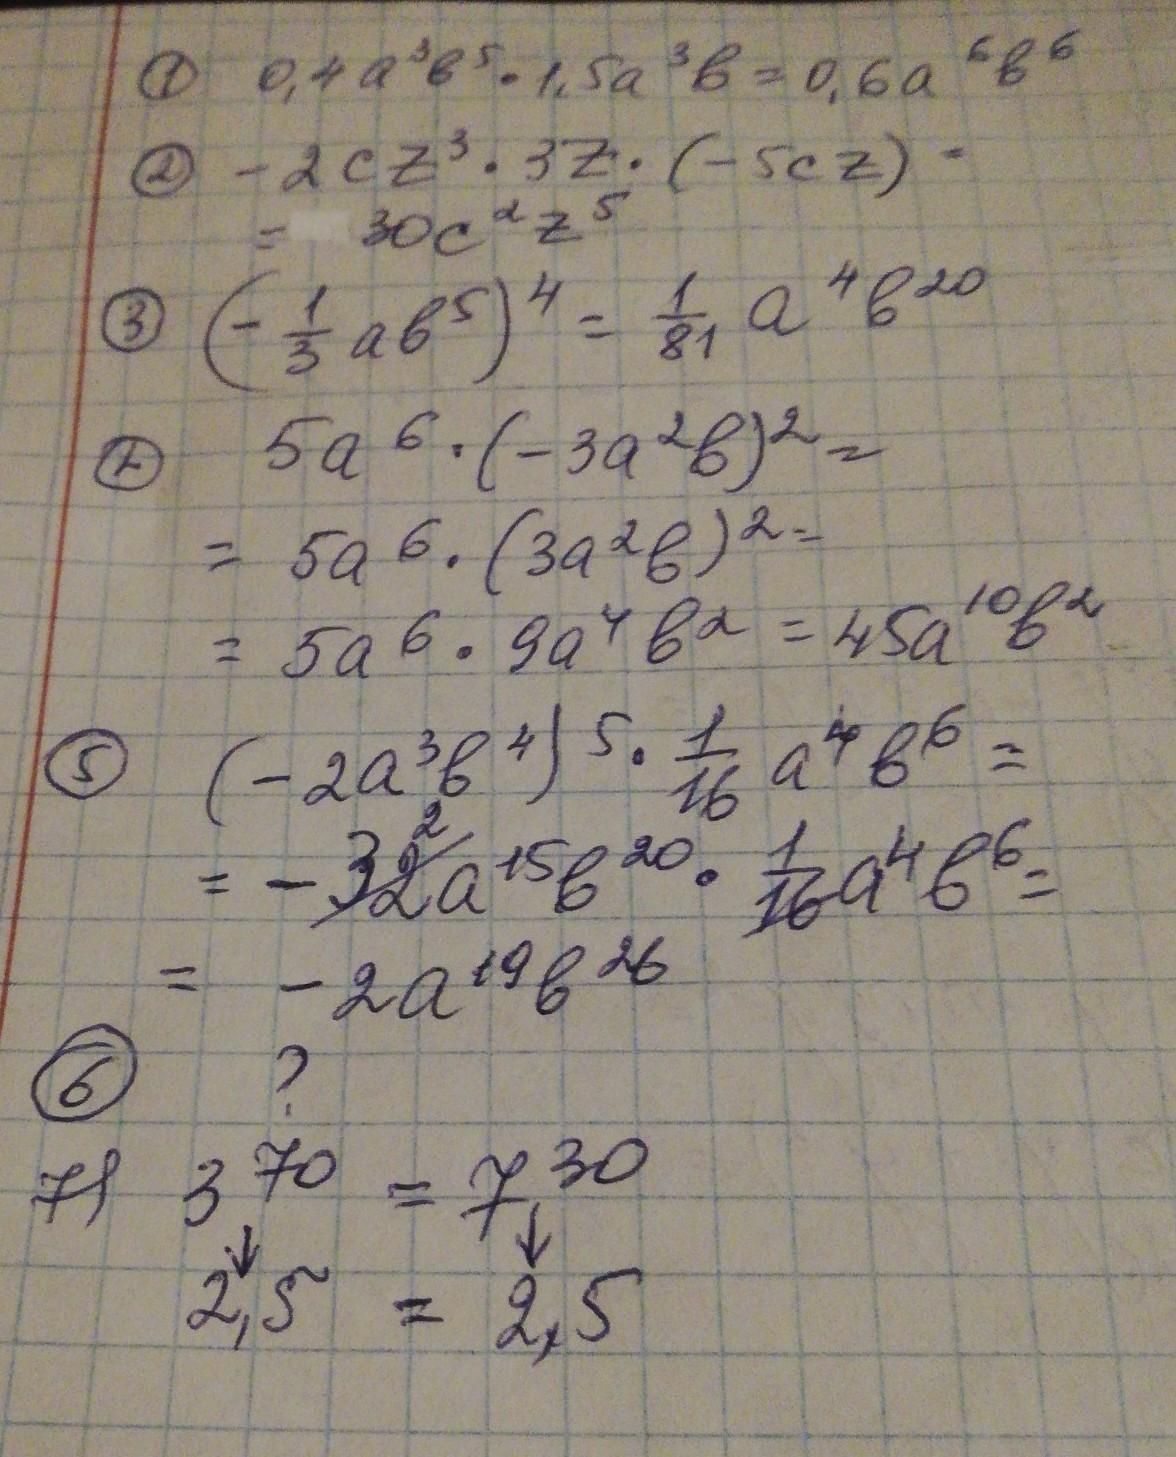 ① 0,4a³b⁵ · 1,5a³b = 0,6a⁶b⁶
② -2cz³ · 3z · (-5cz) =
= 30c²z⁵
③ (-1/3 ab⁵)⁴ = 1/81 a⁴b²⁰
④ 5a⁶ · (-3a²b)² =
= 5a⁶ · (3a²b)² =
= 5a⁶ · 9a⁴b² = 45a¹⁰b²
⑤ (-2a³b⁴)⁵ · 1/16 a⁴b⁶ =
2
= -32a¹⁵b²⁰ · 1/16 a⁴b⁶ =
= -2a¹⁹b²⁶
⑥ ?
7) 3⁷⁰ = 7³⁰
↓ ↓
2,5 = 2,5